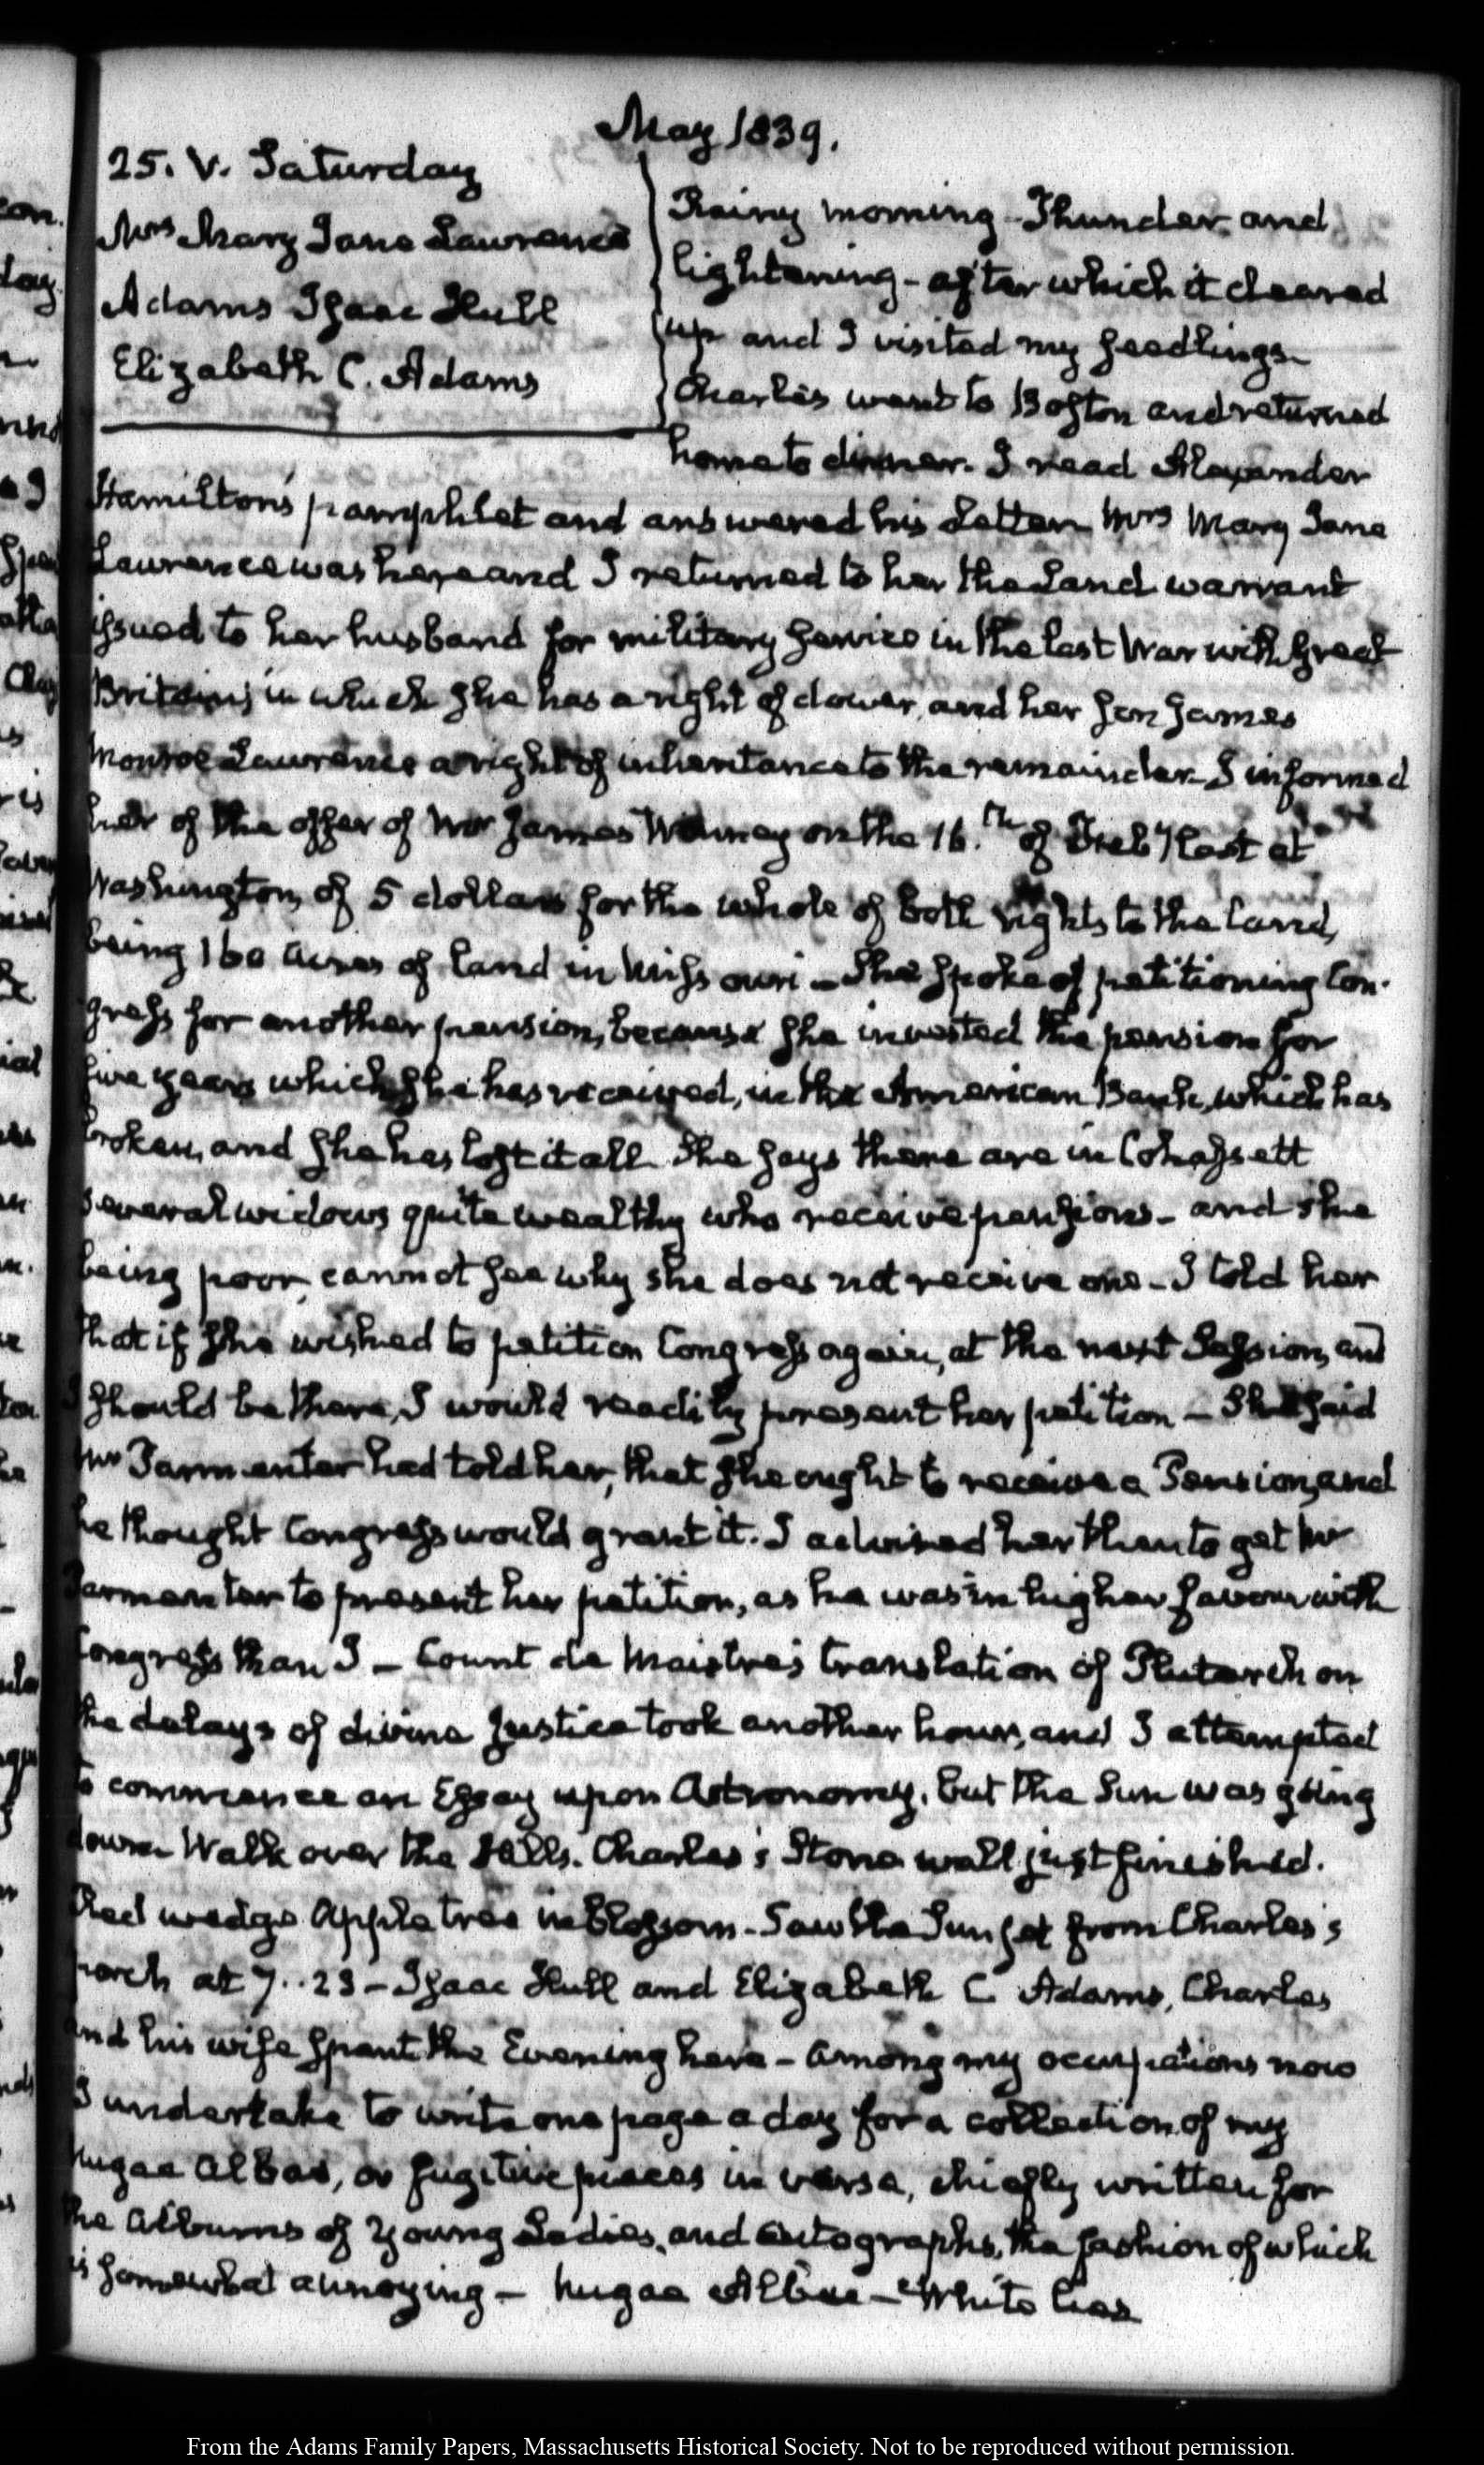 May 1839.
25. V. Saturday
Mrs Mary Jane Lawrence
Adams Isaac Hull
Elizabeth C. Adams
Rainy morning - Thunder and
lightening - after which it cleared
up and I visited my seedlings -
Charles went to Boston and returned
home to dinner. I read Alexander
Hamilton's pamphlet and answered his Letter Mrs Mary Jane
Lawrence was here and I returned to her the Land warrant
issued to her husband for military service in the last War with Great
Britain; in which she has a right of dower, and her son James
Monroe Lawrence a right of inheritance to the remainder. I informed
her of the offer of Mr James on the 16.th of Feby last at
Washington, of 5 dollars for the whole of both rights to the land,
being 160 acres of land in Missouri - She spoke of petitioning Con-
gress for another pension, because she invested the pension for
five years which she has received, in the American Bank, which has
broken, and she has lost it all. She says there are in Cohassett
several widows quite wealthy who receive pensions - and she
being poor, cannot see why she does not receive one - I told her
that if she wished to petition Congress again, at the next Session, and
I should be there, I would readily present her petition - She said
Mr Parmenter had told her, that she ought to receive a Pension, and
he thought Congress would grant it. I advised her then to get Mr
Parmenter to present her petition, as he was in higher favour with
Congress than I - Count de Maistre's translation of Plutarch on
the delays of divine Justice took another hour, and I attempted
to commence an Essay upon Astronomy, but the Sun was going
down Walk over the Hills. Charles's Stone wall just finished.
Red wedge Apple tree in blossom - Saw the Sun set from Charles's
porch at 7..23 - Isaac Hull and Elizabeth C Adams, Charles
and his wife spent the Evening here - Among my occupations now
I undertake to write one page a day for a collection of my
nugae Albae, or fugitive pieces in verse, chiefly written for
the Albums of young Ladies, and Autographs, the fashion of which
is somewhat annoying - nugae Albae - White lies
From the Adams Family Papers, Massachusetts Historical Society. Not to be reproduced without permission.